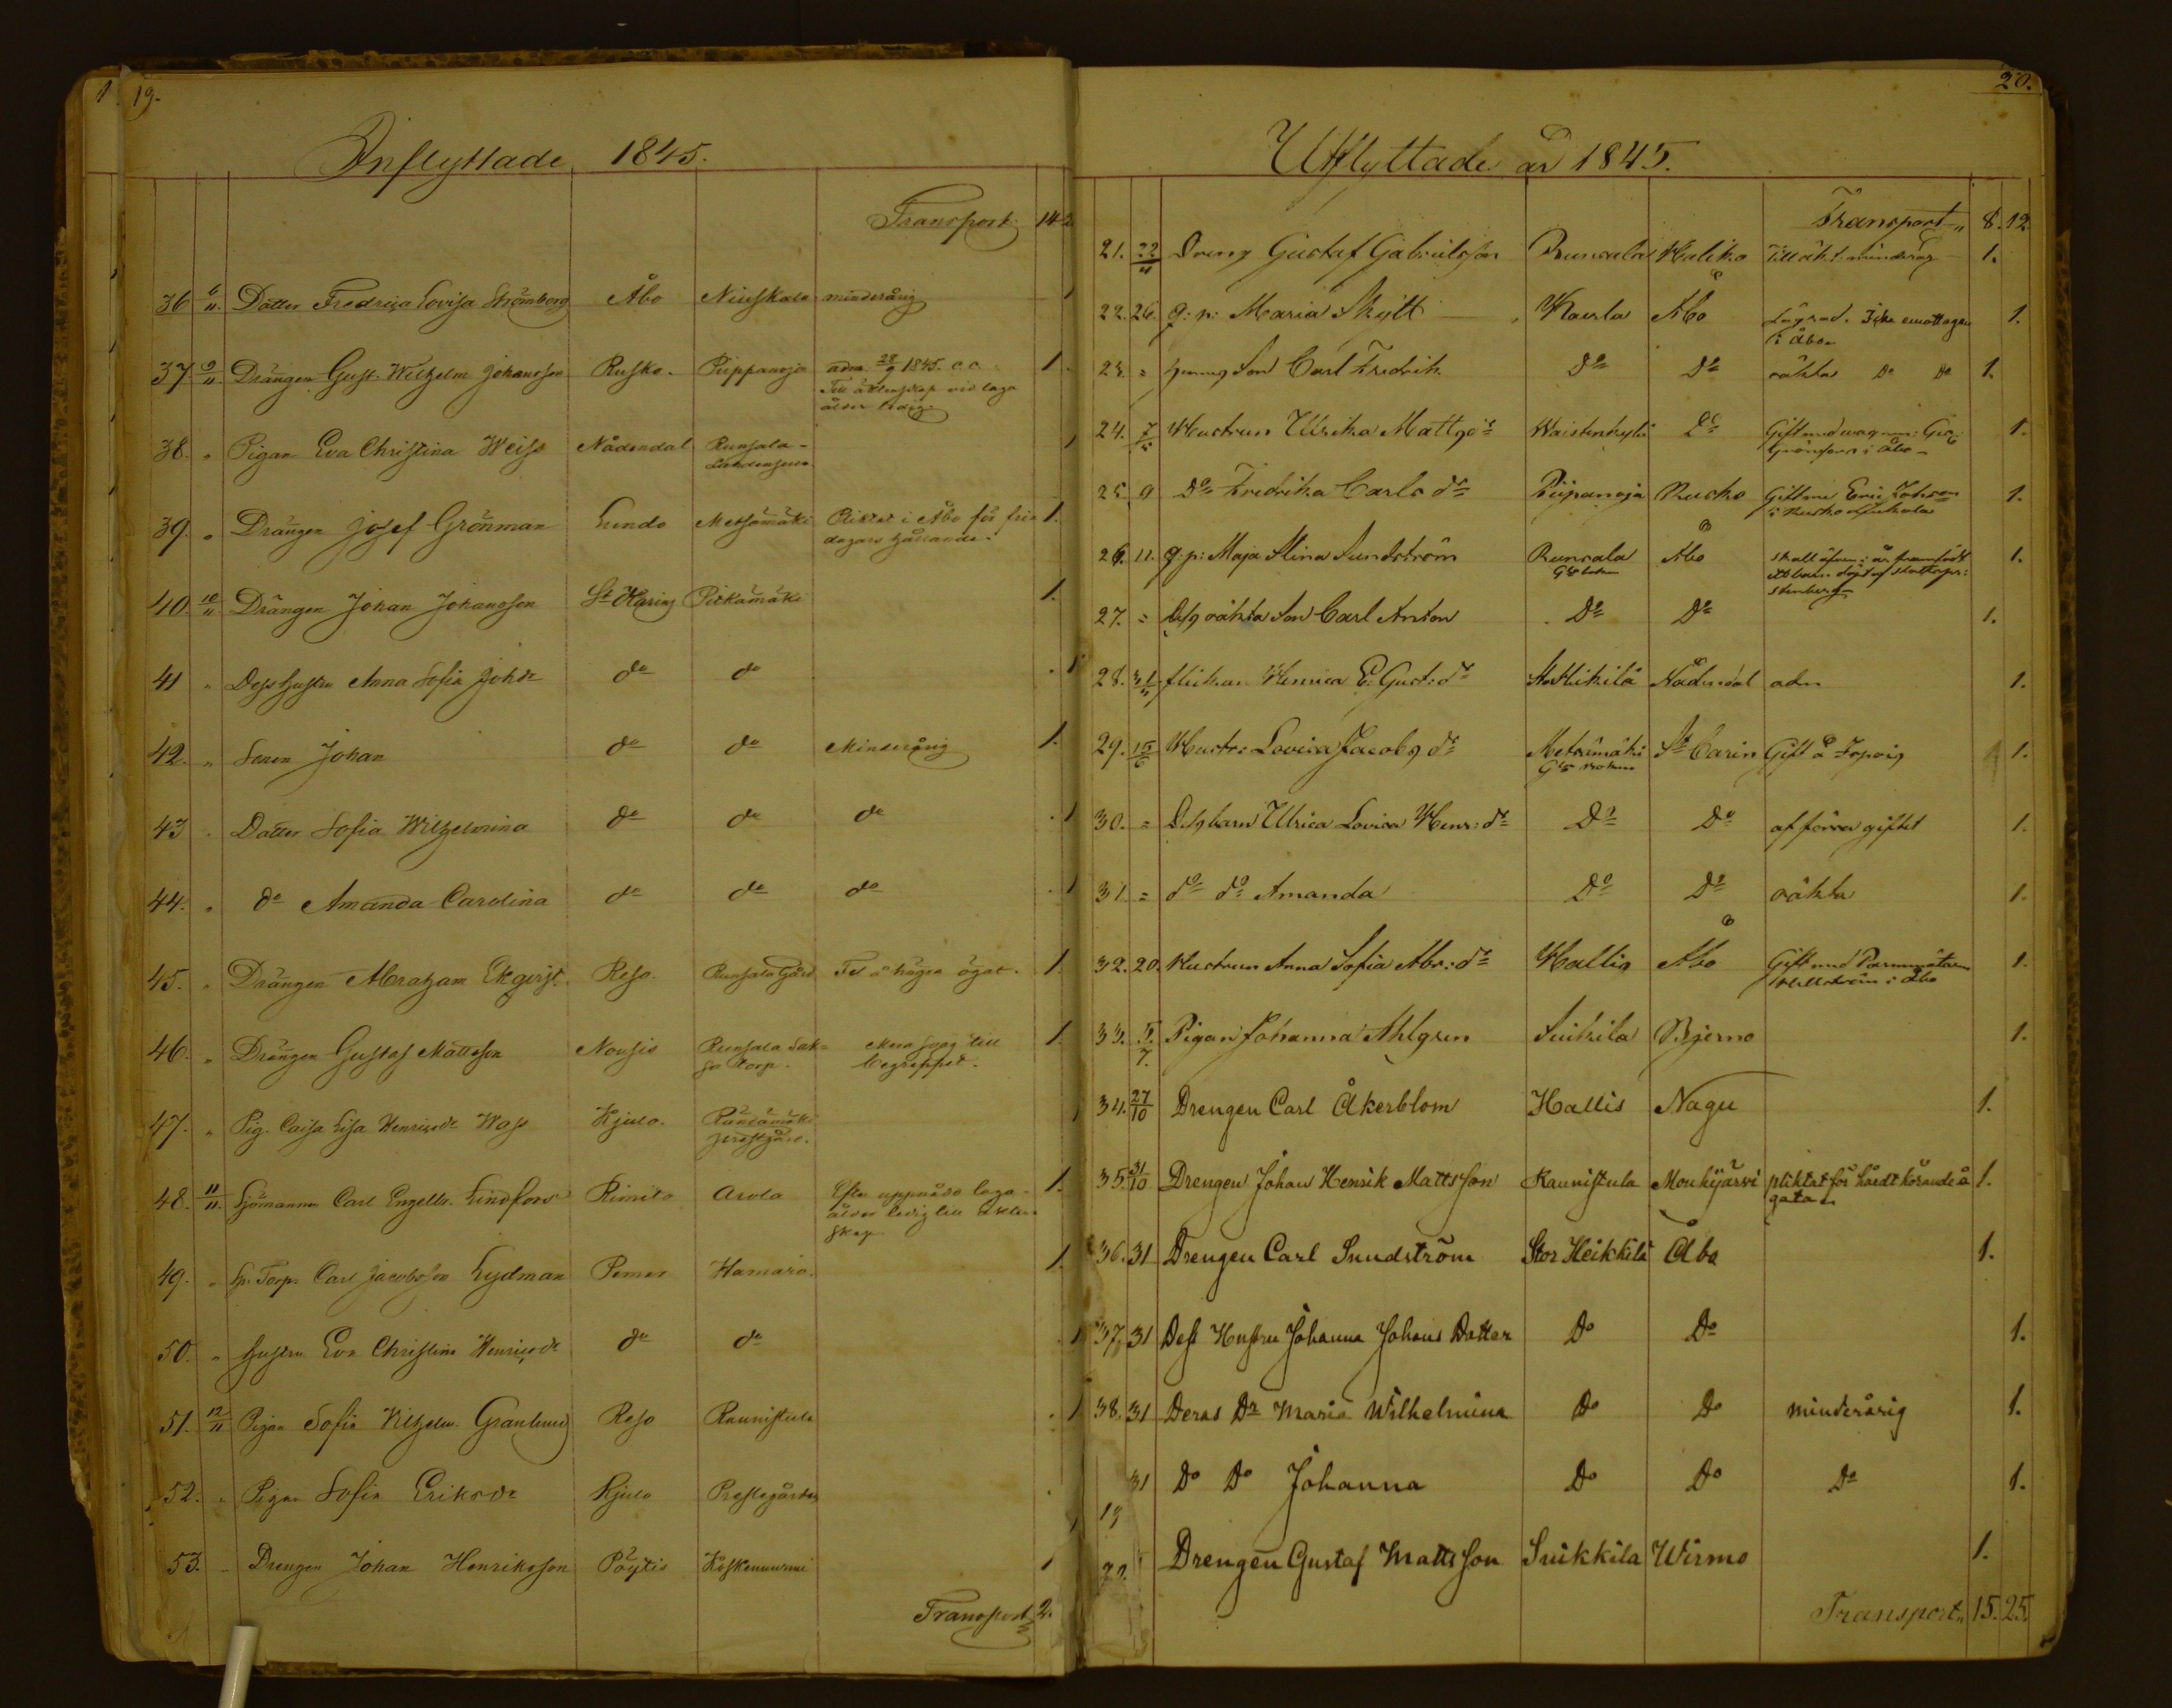 1. 19.
Inflyttade 1845.
Transport 14
36 6/11. Dotter Fredrica Lovisa Strömberg Åbo Niuskala minderårig 1
37. 9/11. Drängen Gust. Wilhelm Johansson Rusko. Piippanoja adm 28/9 1845. c.c. 1.
Till äktenskap vid laga
ålder ledig.
38. " Pigan Eva Christina Weiss Nådendal Runsala- 1
39. " Drängen Josef Grönman Lundo Metsämäki Pliktat i Åbo för fri 1.
dagars hållande.
40. 10/11 Drängen Johan Johansson St Karins Pitkämäki 1.
41 " Dess hustru Anna Sofia Johdr do do 1
42. " Sonen Johan do do Minderårig 1.
43 . Dotter Sofia Wilhelmina do do do 1
44. " do Amanda Carolina do do do 1
45. " Drängen Abraham Ekqvist. Reso. Runsala Gård Fel å högra ögat. 1.
46. " Drängen Gustaf Mattsson Nousis Runsala 1.
torp. begreppet.
47. " Pig. Caisa Lisa Henricsdr Wass Kjulo. Räntämäki 1
prestgård.
48. 11/11. Sjömannen Carl Engelbr. Lindfors Rimito Arola Efter uppnådd laga 1.
ålder ledig till äkten
skap
49. " Torp. Carl Jacobsson Lydman Pemar Hamaro. 1.
50. " hustru Eva Christina Henricsdr do do 1
51. 12/11 Pigan Sofia Wilhelm. Granlund Reso Raunistula 1
52. " Pigan Sofia Eriksdr Kjulo Prestegården 1
53. " Drengen Johan Henriksson Pöytis Koskennurmi 1
Transport 2.
20.
Utflyttade år 1845.
Transport" 8. 12
21. 22/4 Dreng Gustaf Gabrielsson Runsala Haliko Till äkt. minderåg 1.
22. 26. q:p: Maria Skytt Kaerla Åbo Lägrad. Icke emottagen 1.
i Åbo
23. = hennes Son Carl Fredrik do do oäkta Do Do 1.
24. 7/5 Hustrun Ulrika Mattsdr Waistenkylä Do Gift med 1.
i Åbo
25. 9 Do Fredrika Carls dr Piipanoja Rusko Gift med Eric Johsson 1.
i Rusko
26. 11. q:p: Maja Stina Sundström Runsala Åbo 1.
27. = Dess oäkta Son Carl Anton Do Do 1.
28. 31/5 flickan Henrica E. Gust:dr St Heikilä Nådendal adm 1.
29. 15/6 Hustr: Lovisa Jacobs dr Metsämäki St Carin Gift å 1.
30. = Dess barn Ulrica Lovisa Henr:dr Do Do af förra giftet 1.
31. = do do Amanda Do Do oäkta 1.
32. 20. Hustrun Anna Sofia Abr:dr Hallis Åbo Gift med 1.
i Åbo
33. 5/7. Pigan Johanna Ahlgren Suikila Bjerno 1.
34. 27/10 Drengen Carl Åkerblom Hallis Nagu 1.
35. 31/10 Drengen Johan Henrik Mattsson Raunistula Mouhijärvi pliktat för hårdt körande å 1.
gatan
36. 31 Drengen Carl Sundström Stor Heikkilä Åbo 1.
37. 31 Dess Hustru Johanna Johans Dotter Do Do 1.
38. 31 Deras Dr Maria Wilhelmina Do Do minderårig 1.
31 Do Do Johanna Do Do Do 1.
19
Drengen Gustaf Mattsson Suikkila Wirmo 1.
Transport" 15. 25.